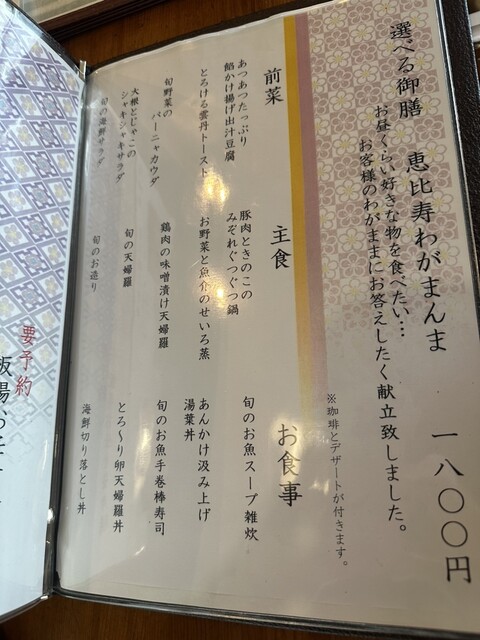 選べる御膳　恵比寿わがまんま　一八〇〇円
お昼くらい好きな物を食べたい….
お客様のわがままにお答えしたく献立致しました。
※珈琲とデザートが付きます。
前菜
あつあつたっぷり
餡かけ揚げ出汁豆腐
とろける雲丹トースト
旬野菜の
バーニャカウダ
大根とじゃこの
シャキシャキサラダ
旬の海鮮サラダ
主食
豚肉ときのこの
みぞれぐつぐつ鍋
お野菜と魚介のせいろ蒸
鶏肉の味噌漬け天婦羅
旬の天婦羅
旬のお造り
お食事
旬のお魚スープ雑炊
あんかけ汲み上げ
湯葉丼
旬のお魚手巻棒寿司
とろ〜り卵天婦羅丼
海鮮切り落とし丼
要予約